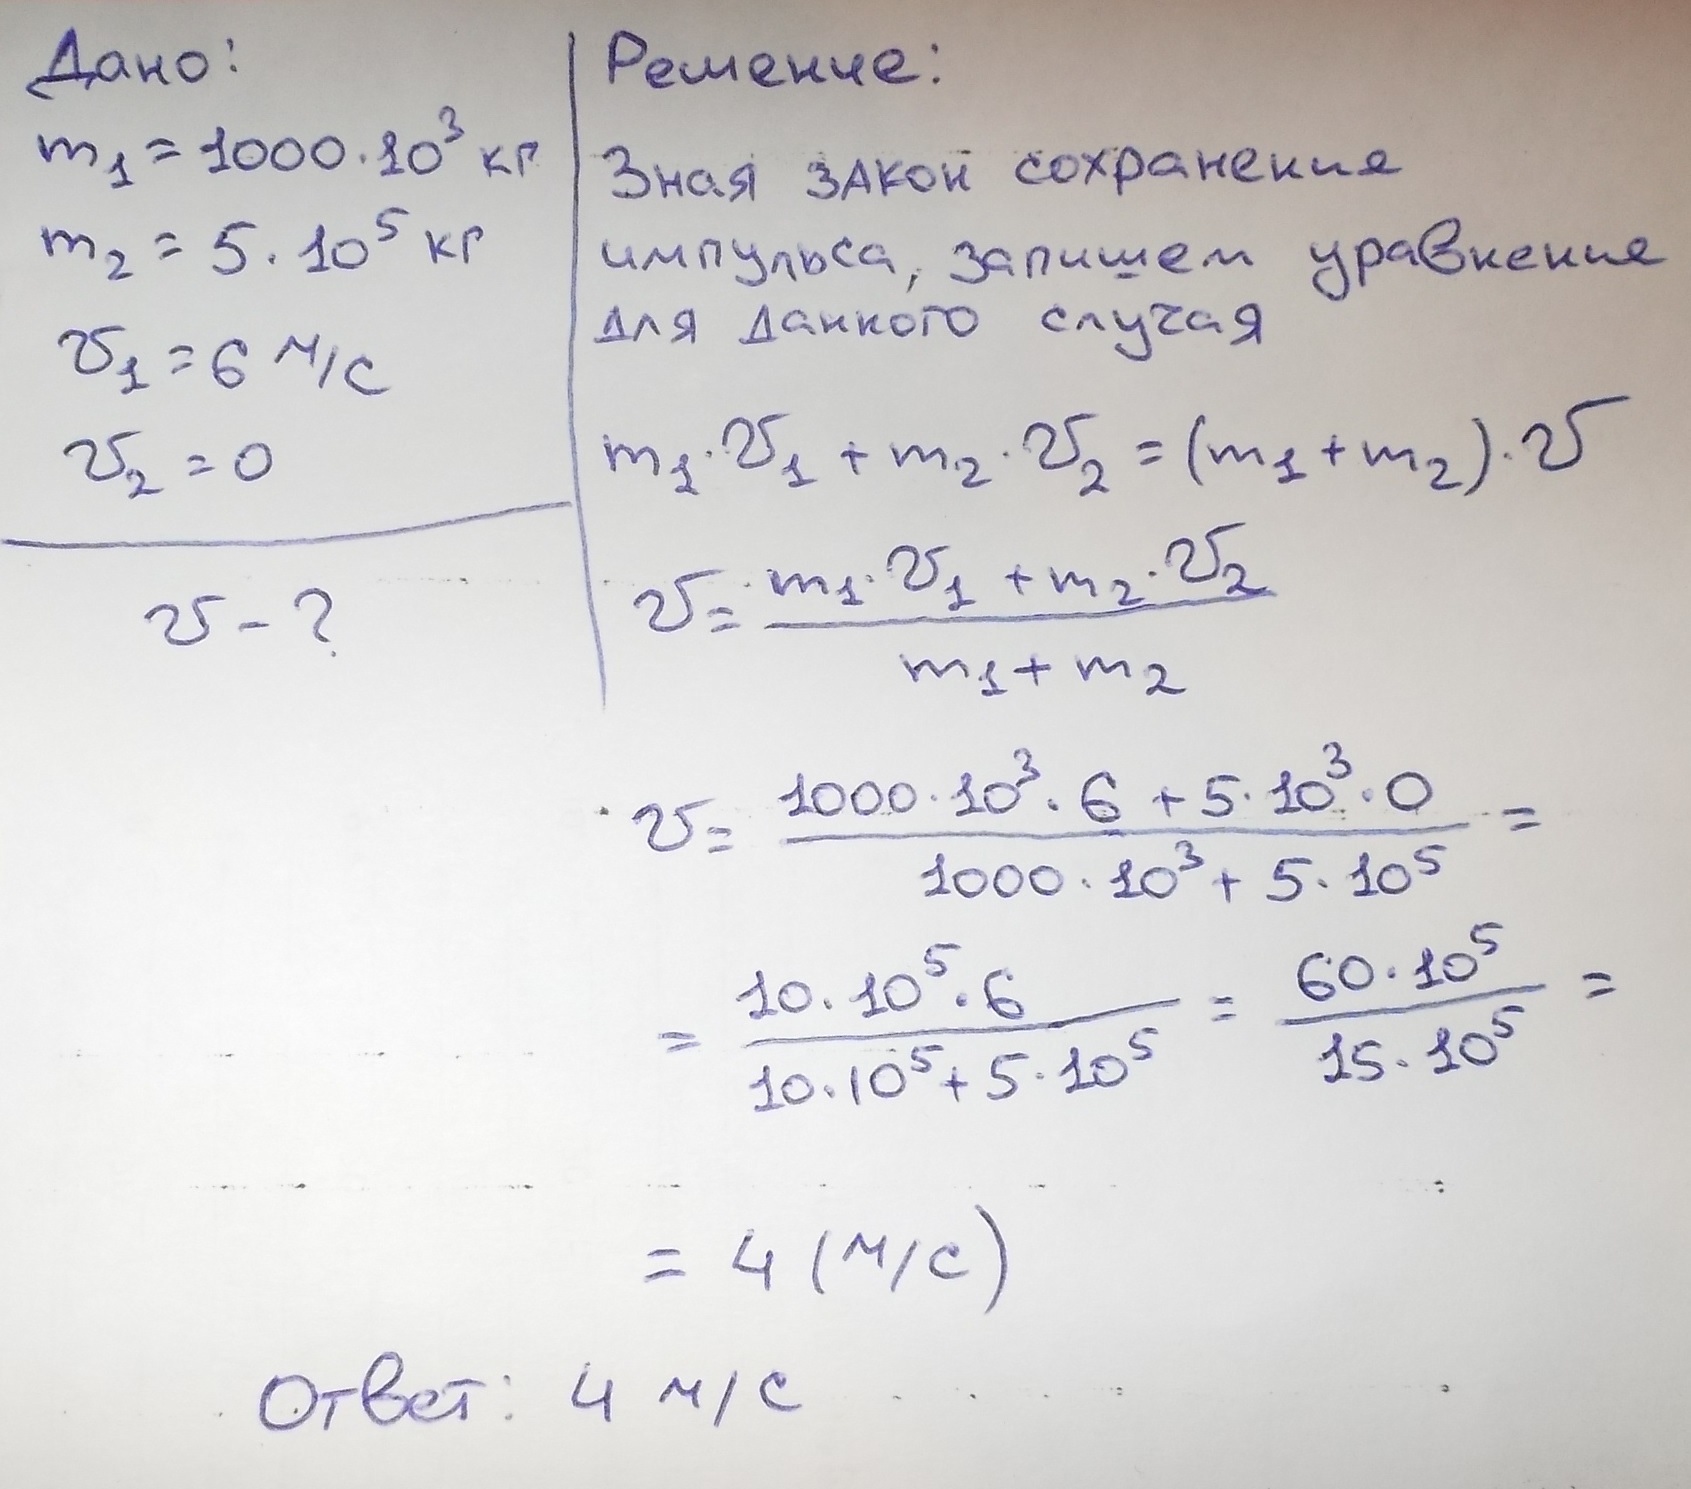 Дано:
m₁ = 1000·10³ кг
m₂ = 5·10⁵ кг
v₁ = 6 м/с
v₂ = 0
v - ?
Решение:
Зная закон сохранение
импульса, запишем уравнение
для данного случая
m₁·v₁ + m₂·v₂ = (m₁ + m₂)·v
v = (m₁·v₁ + m₂·v₂) / (m₁ + m₂)
v = (1000·10³·6 + 5·10³·0) / (1000·10³ + 5·10⁵) =
= (10·10⁵·6) / (10·10⁵ + 5·10⁵) = (60·10⁵) / (15·10⁵) =
= 4 (м/с)
Ответ: 4 м/с